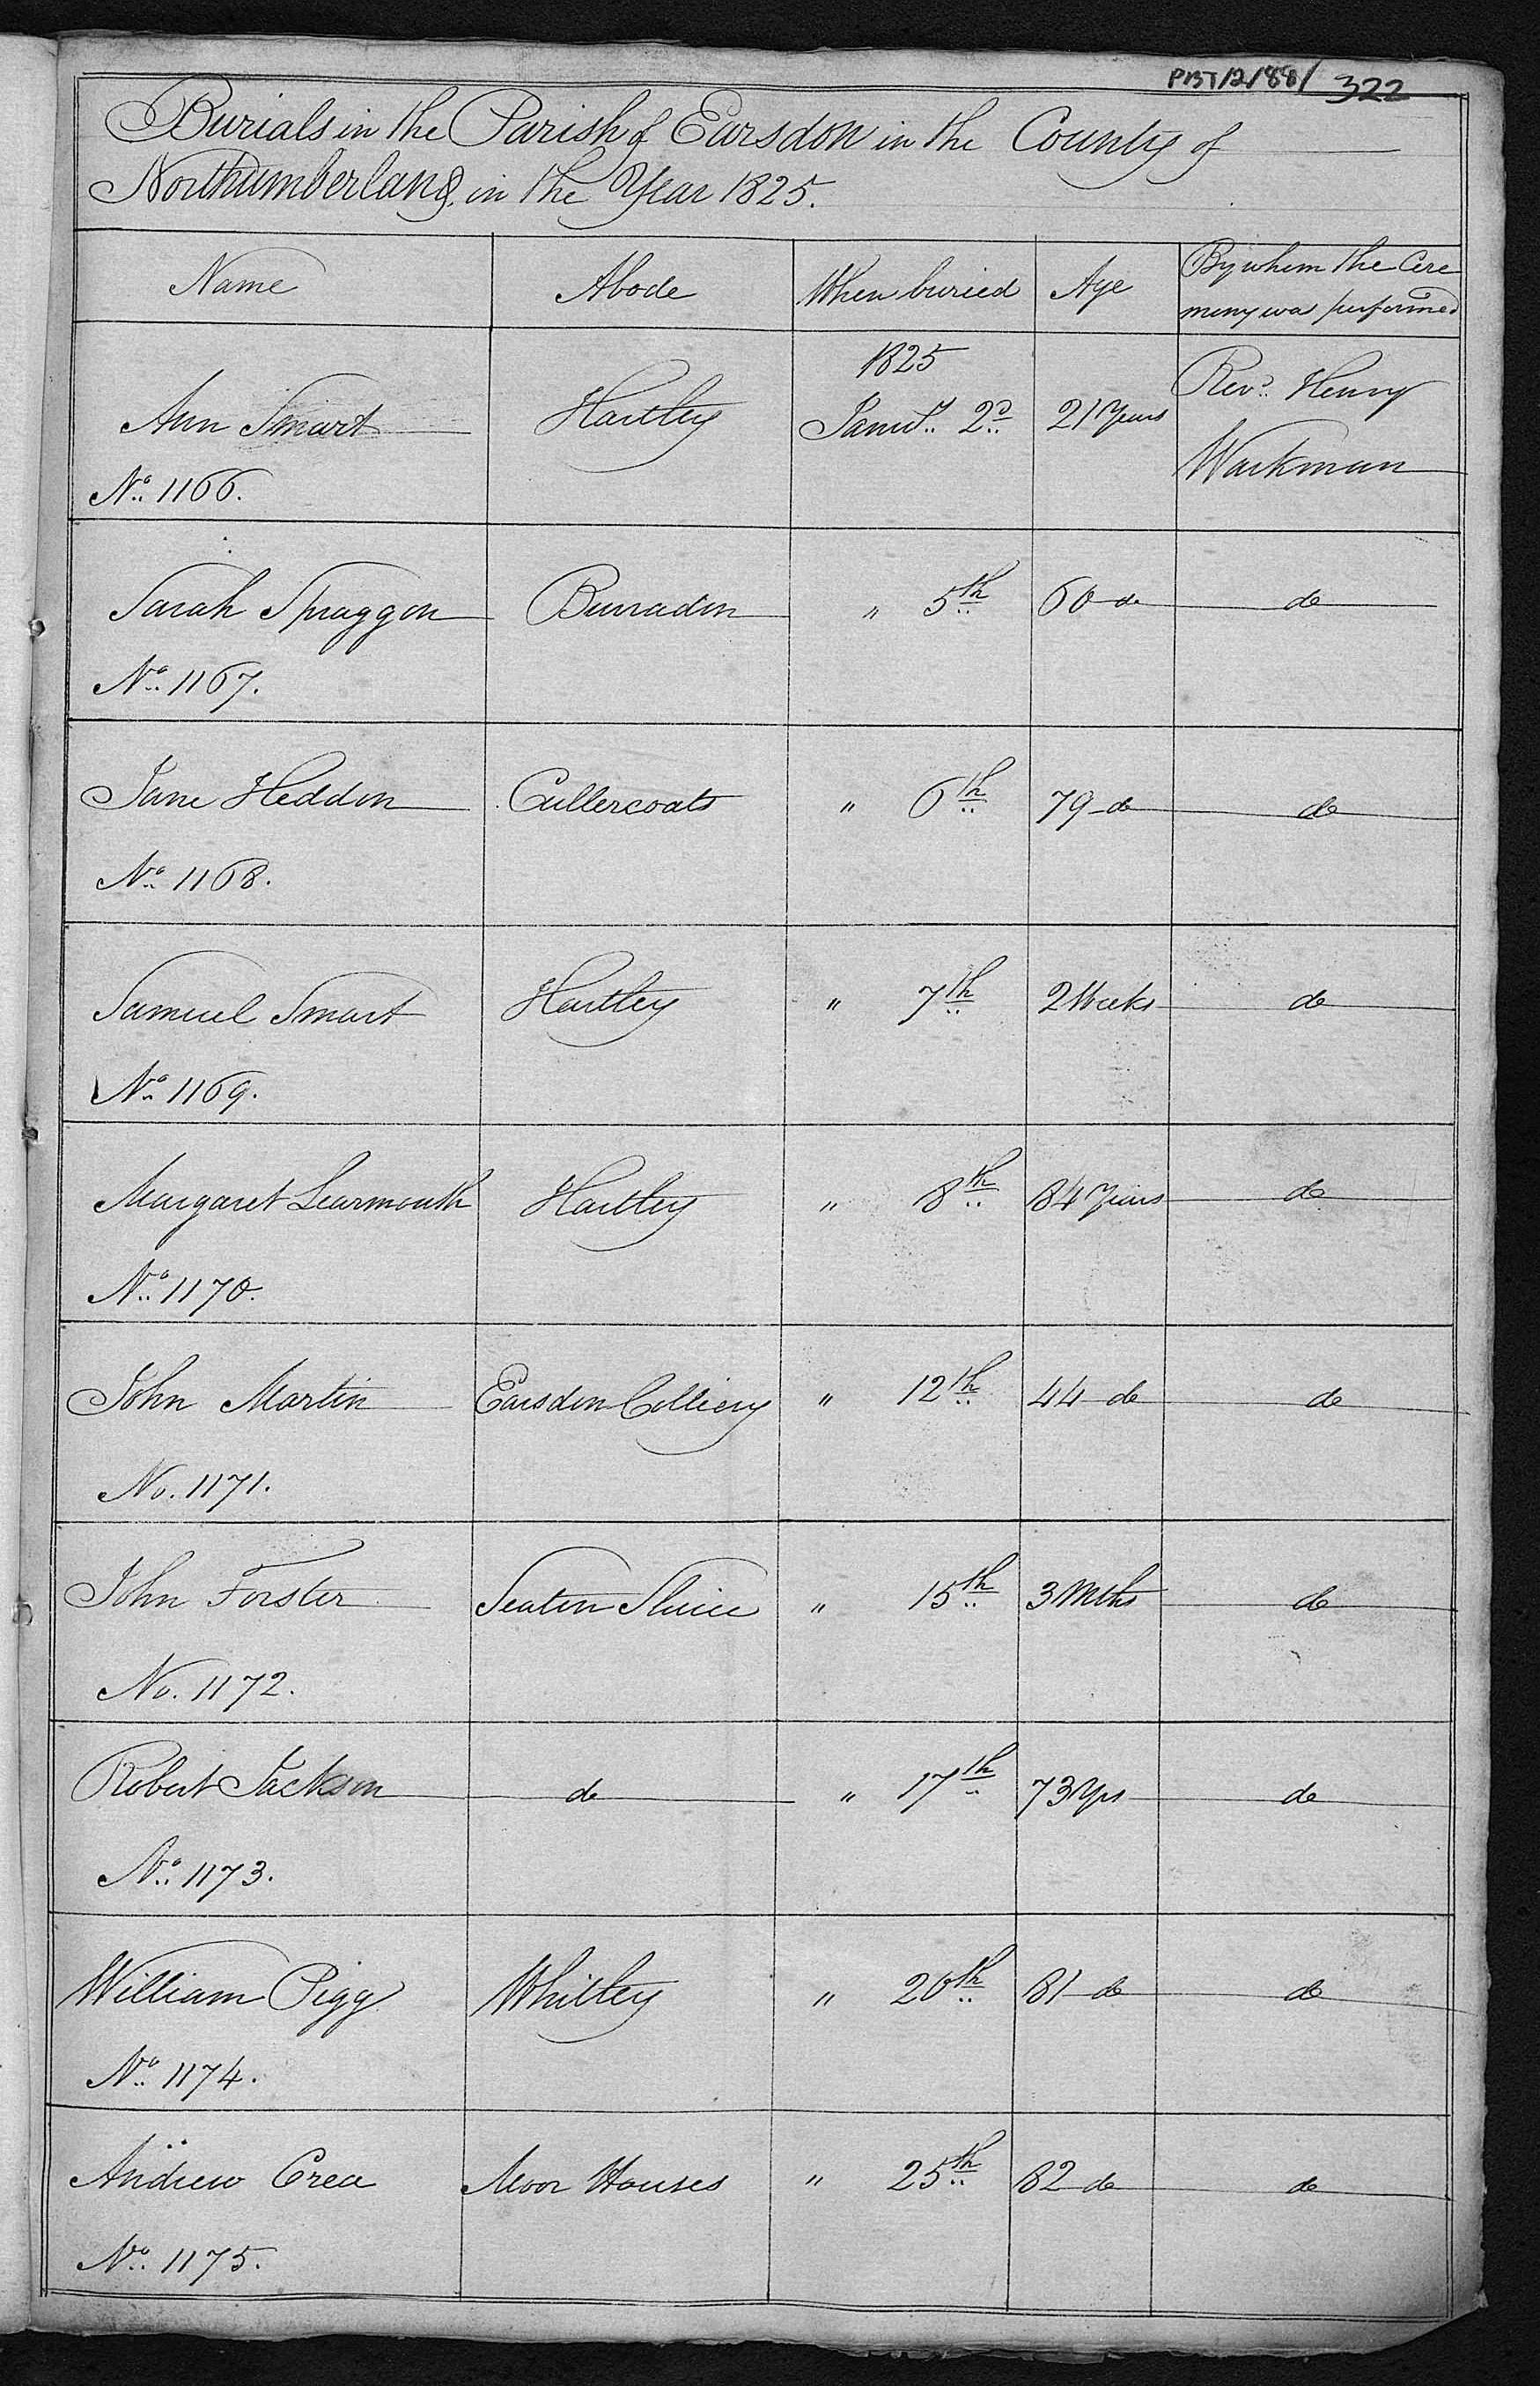 PBT12/88/ 322
Burials in the Parish of Earsdon in the County of
Northumberland, in the Year 1825.
Name Abode When buried Age By whom the Cere
mony was performed
1825
Ann Smart Hartley Janu.y 2.d 21 Years Rev.d Henry
Warkman
No. 1166.
Sarah Spraggon Burradon " 5th 60 do do
No. 1167.
Jane Heddon Cullercoats " 6th 79 do do
No. 1168.
Samuel Smart Hartley " 7th 2 Weeks do
No. 1169.
Margaret Learmouth Hartley " 8th 84 Years do
No. 1170.
John Martin Earsdon Colliery " 12th 44 do do
No. 1171.
John Forster Seaton Sluice " 15th 3 Mths do
No. 1172.
Robert Jackson do " 17th 73 Yrs do
No. 1173.
William Pigg Whitley " 20th 81 do do
No. 1174.
Andrew Crea Moor Houses " 25th 82 do do
No. 1175.